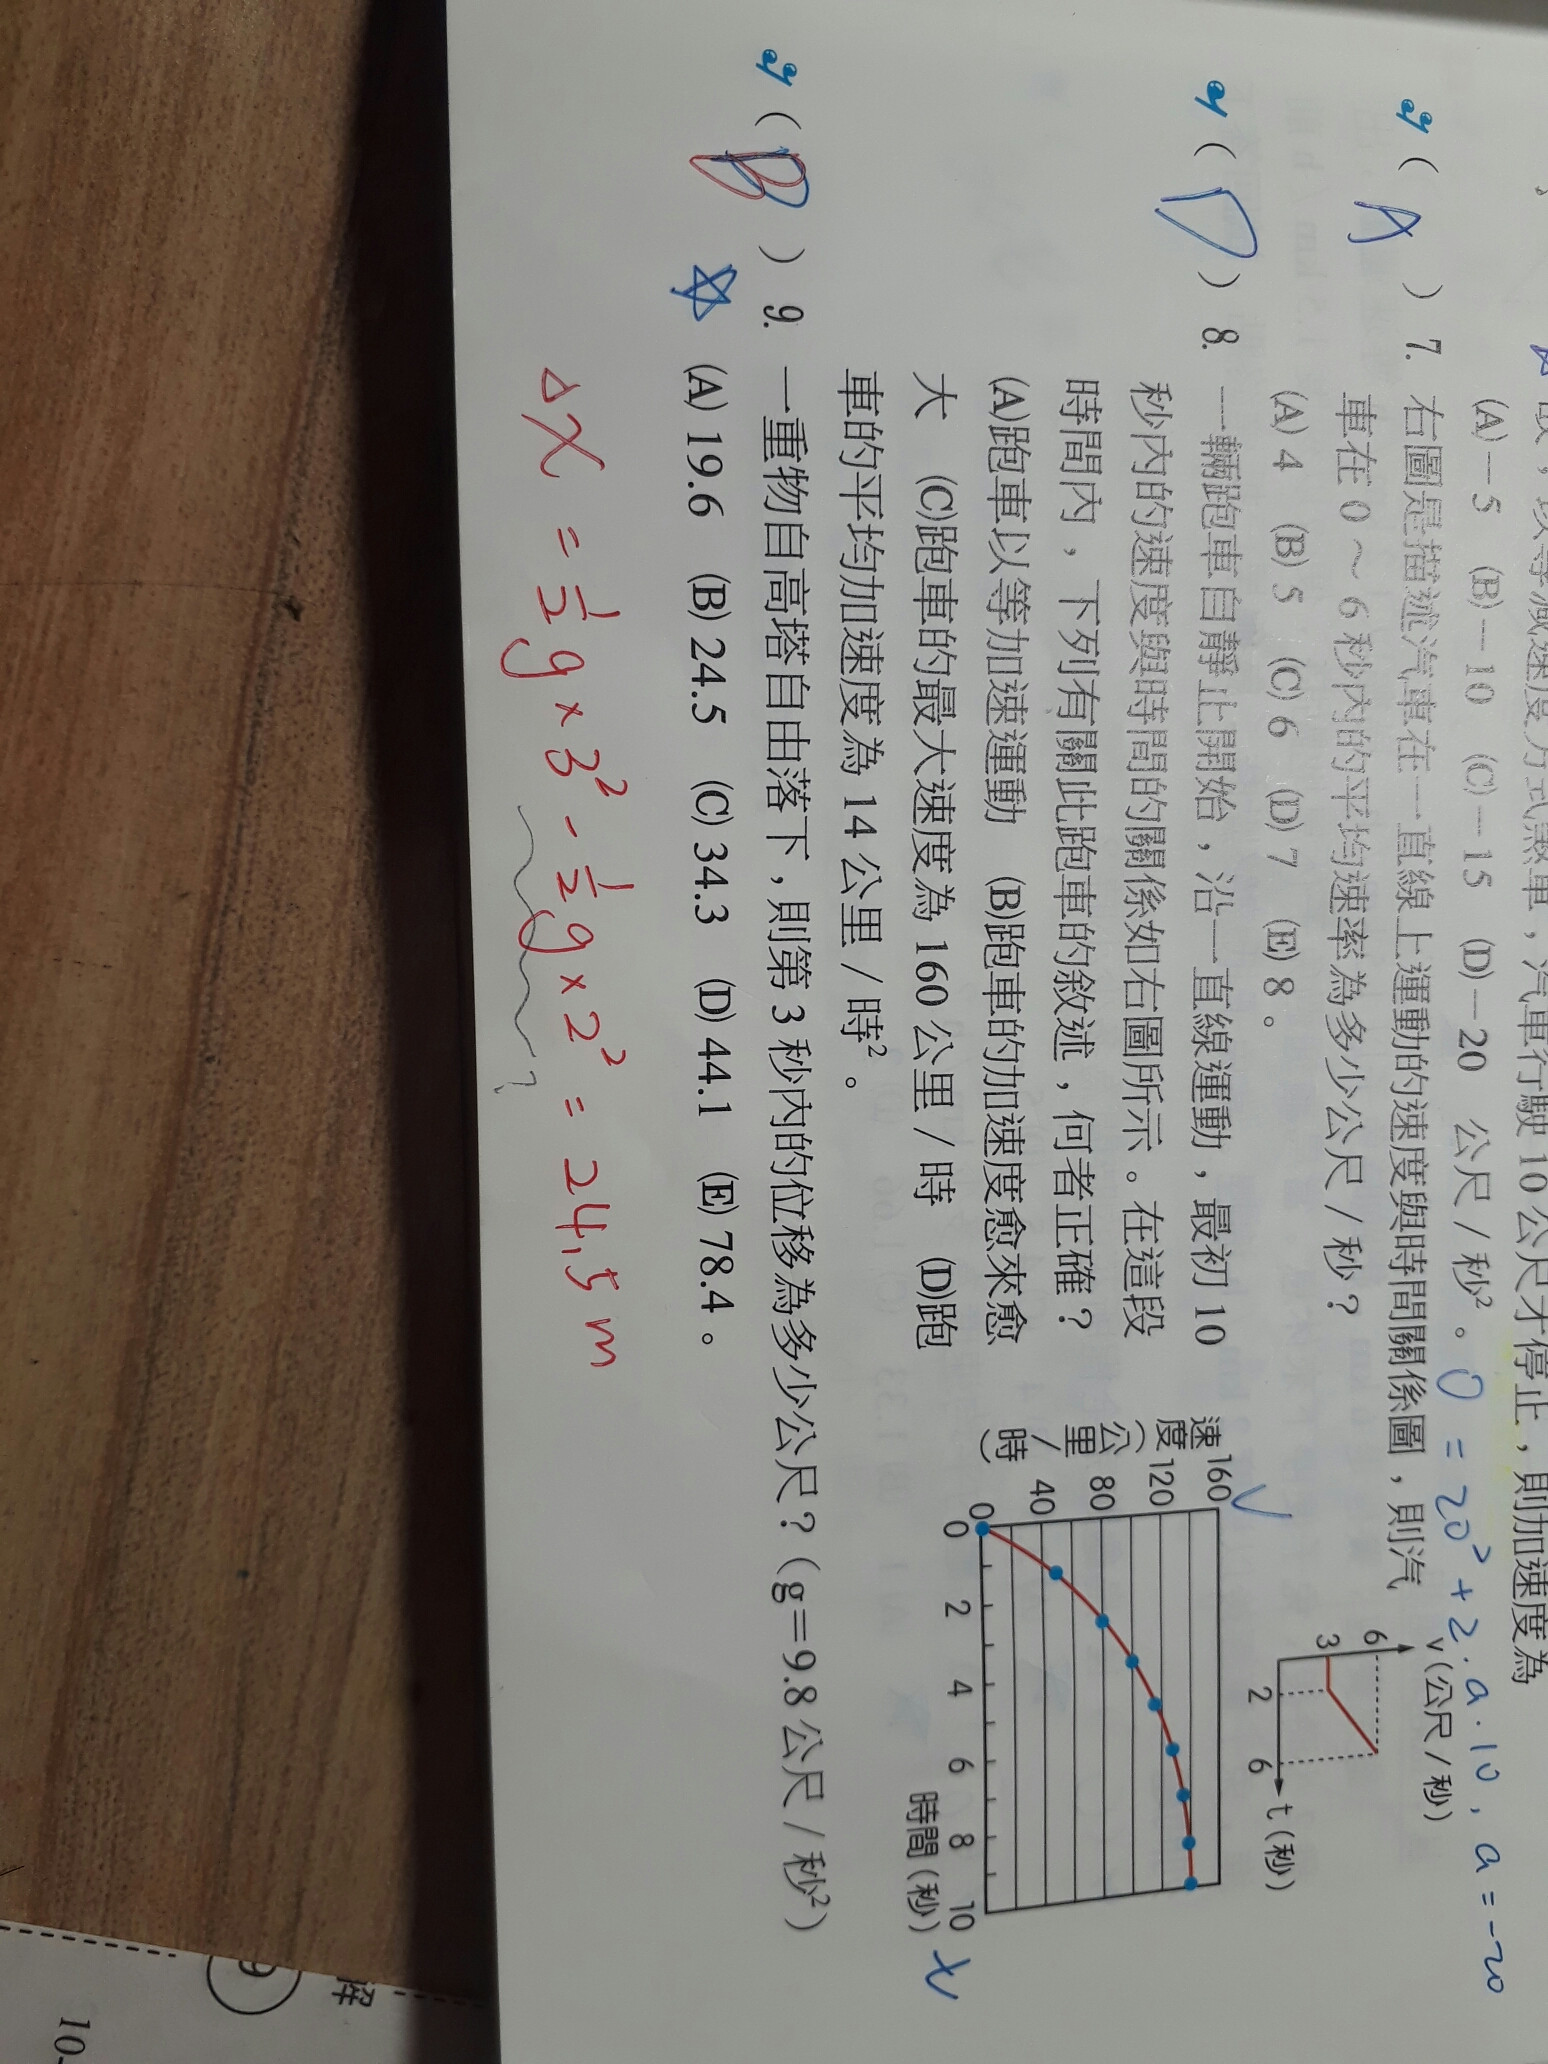 故，以等減速度方式煞車，汽車行駛10公尺才停止，則加速度為
(A)－5 (B)－10 (C)－15 (D)－20 公尺／秒²。
0 = 20² + 2．a．10，a = -20
(A) 7. 右圖是描述汽車在一直線上運動的速度與時間關係圖，則汽
車在0～6秒內的平均速率為多少公尺／秒？
(A) 4 (B) 5 (C) 6 (D) 7 (E) 8。
v(公尺／秒)
6
3
2
6
t(秒)
(D) 8. 一輛跑車自靜止開始，沿一直線運動，最初10
秒內的速度與時間的關係如右圖所示。在這段
時間內，下列有關此跑車的敘述，何者正確？
(A)跑車以等加速運動 (B)跑車的加速度愈來愈
大 (C)跑車的最大速度為160公里／時 (D)跑
車的平均加速度為14公里／時²。
速度（公里／時）
160
120
80
40
0
0 2 4 6 8 10
時間(秒)
V
(B) 9. 一重物自高塔自由落下，則第3秒內的位移為多少公尺？(g＝9.8公尺／秒²)
(A) 19.6 (B) 24.5 (C) 34.3 (D) 44.1 (E) 78.4。
Δx = ½g × 3² - ½g × 2² = 24.5 m
?
解
9
10-